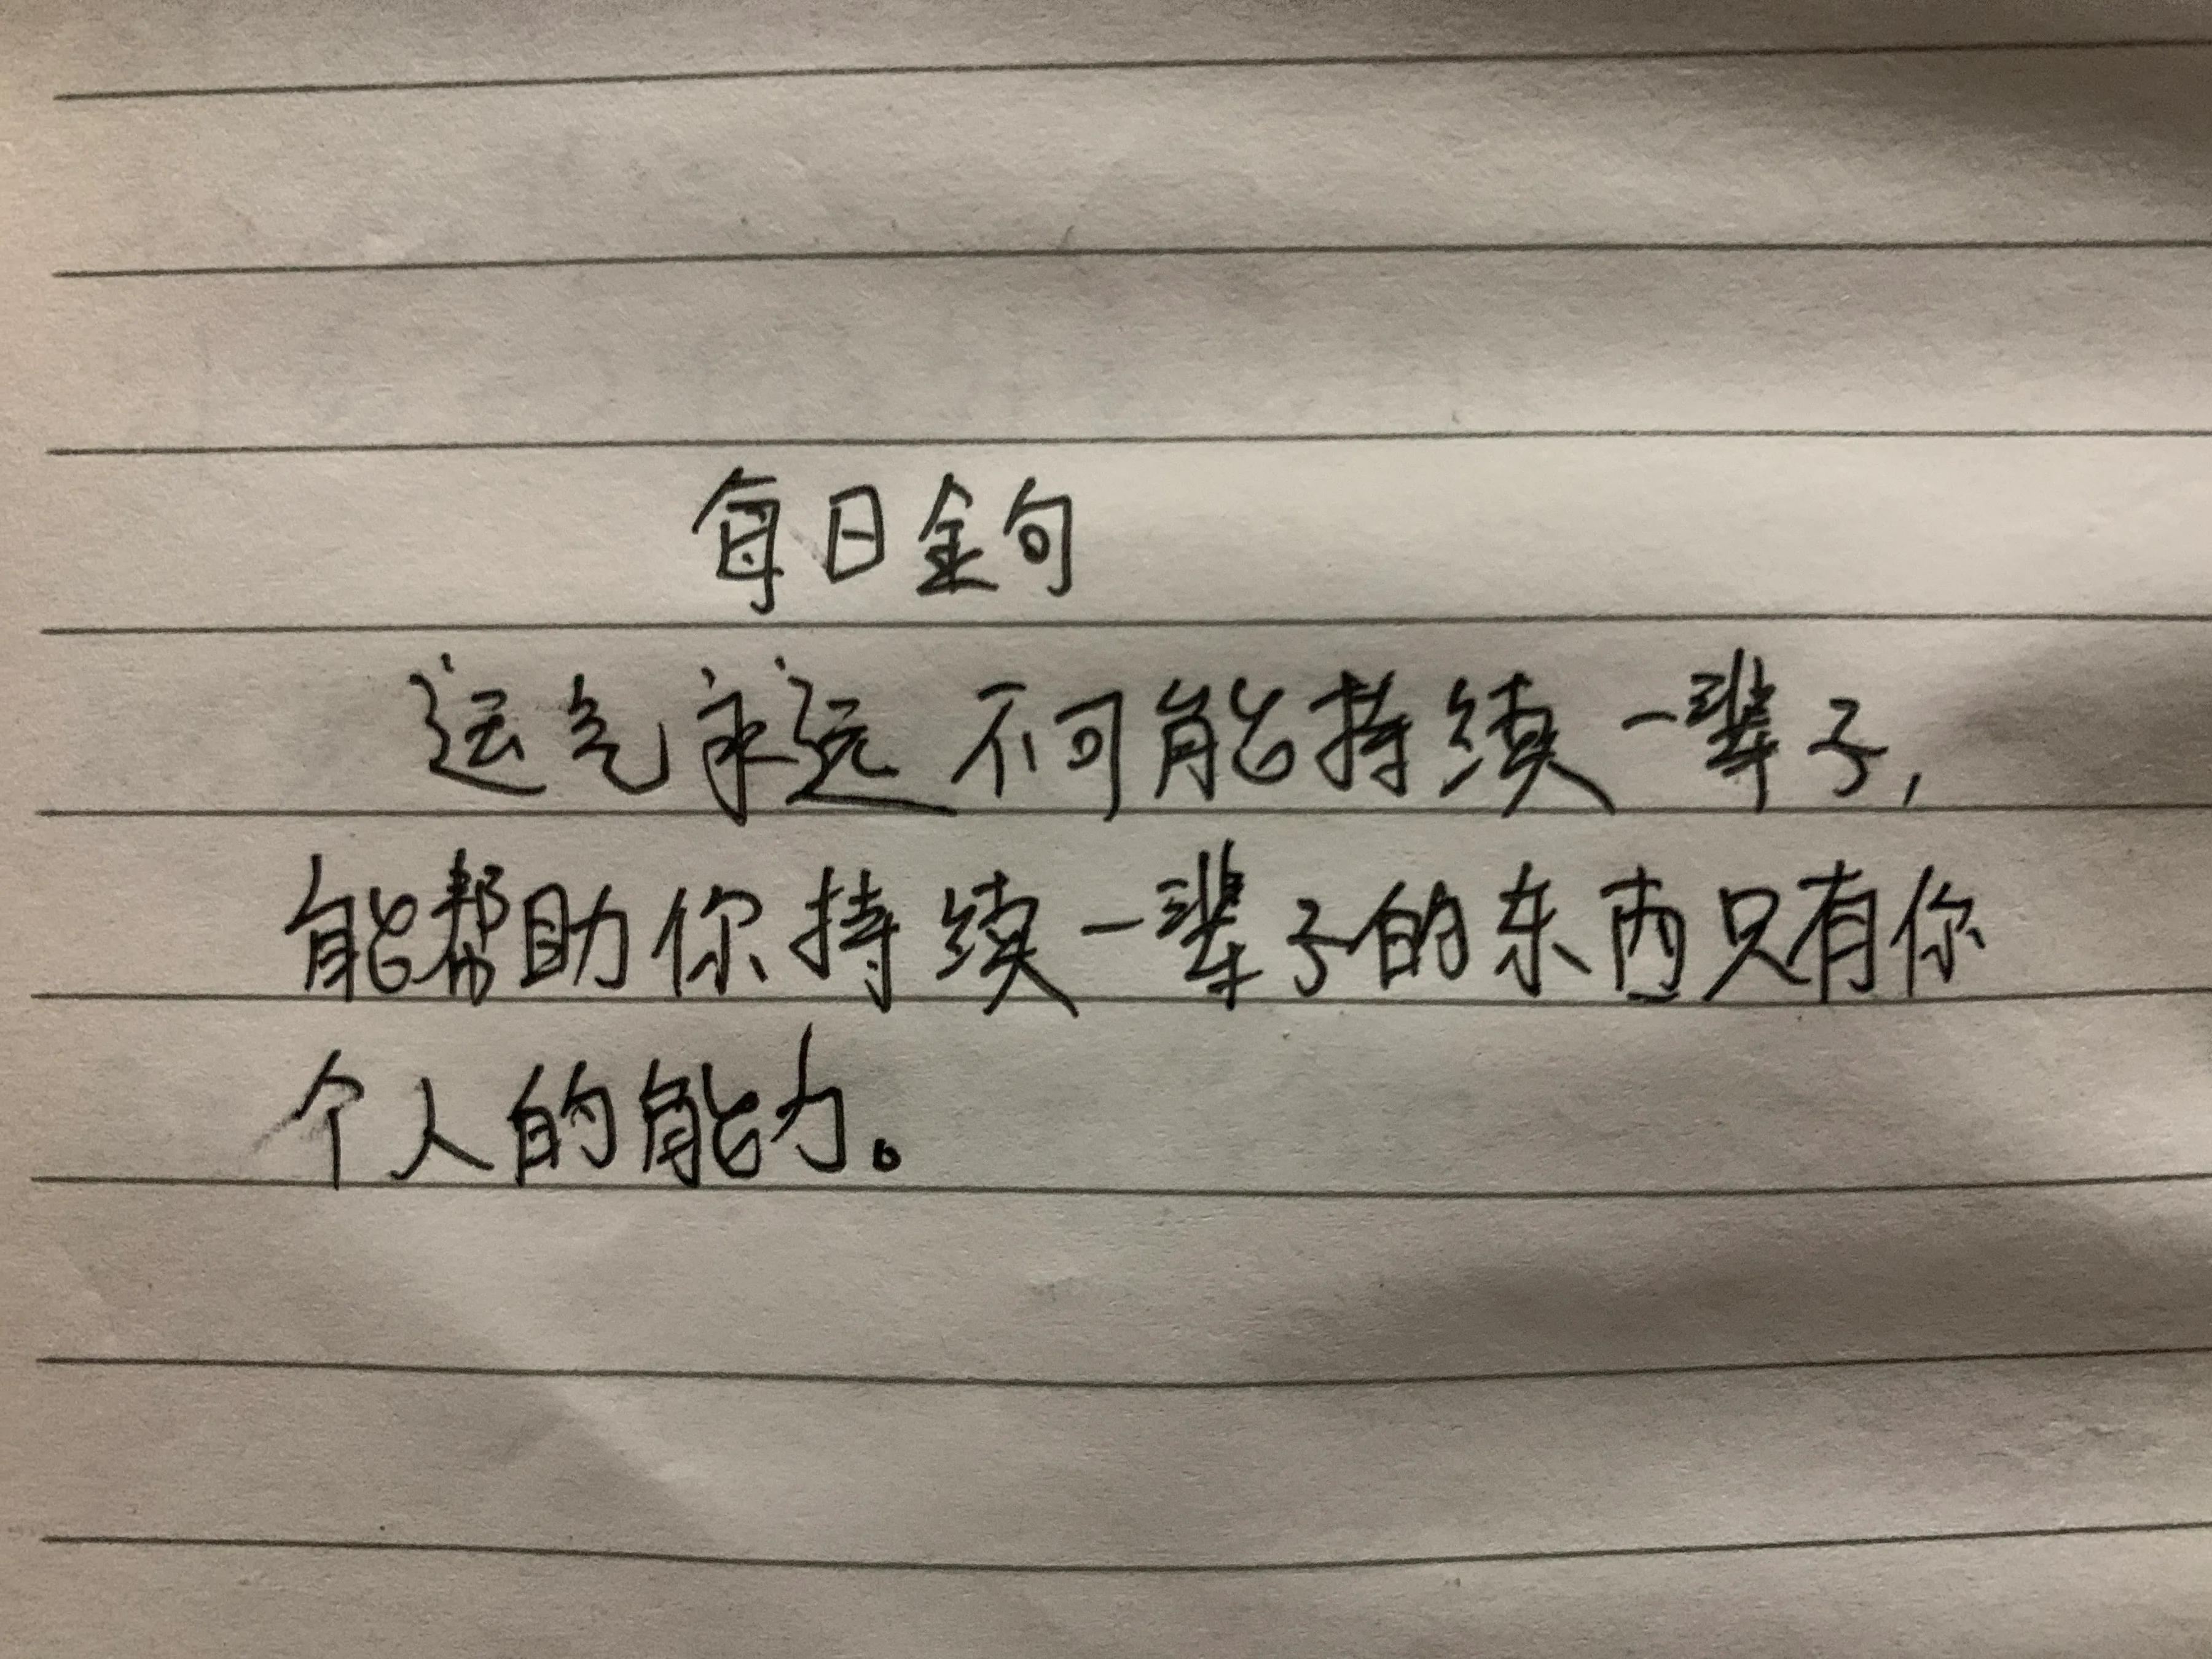 每日金句
运气永远不可能持续一辈子，
能帮助你持续一辈子的东西只有你
个人的能力。